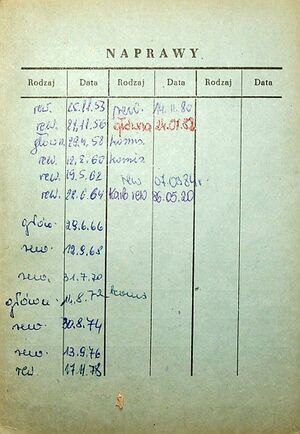 NAPRAWY
Rodzaj Data Rodzaj Data Rodzaj Data
rew. 25.11.53 rew. 14.11.80
rew. 21.11.56 główna 24.01.82
główna 29.4.58 komis
rew. 12.2.60 komis
rew. 19.5.62 rew 07.03.84r.
rew. 22.6.64 rew 86.05.20
głów. 29.6.66
rew. 12.9.68
rew. 31.7.70
główn. 14.8.72 komis
rew. 30.8.74
rew. 13.9.76
rew. 17.11.78